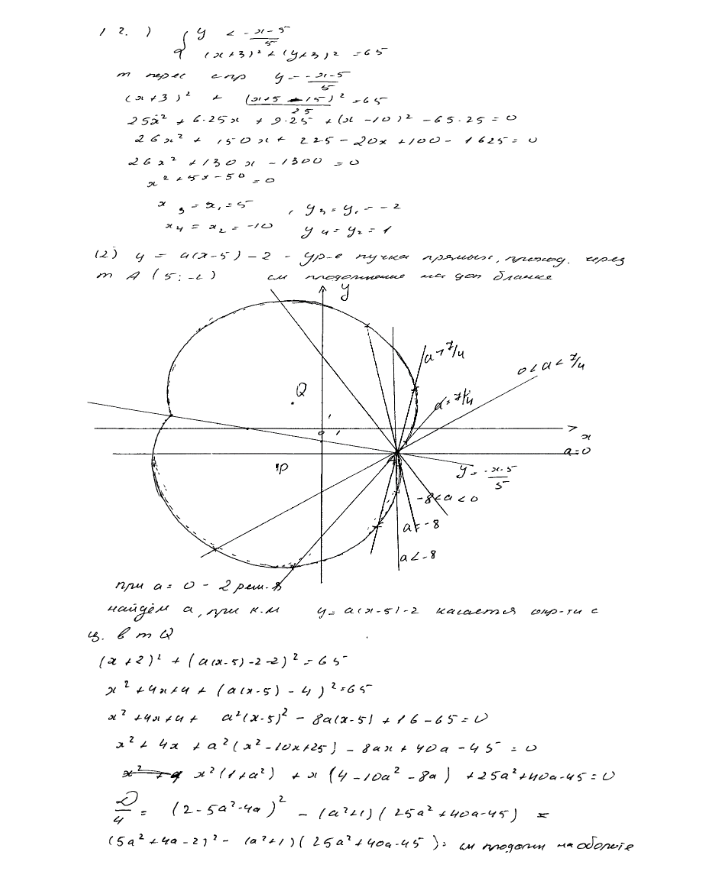 1 2. ) { y < (-x-5)/5
(x+3)² + (y+3)² = 65
т перес с пр y = (-x-5)/5
(x+3)² + (x+5-15)²/25 = 65
25x² + 6·25x + 9·25 + (x-10)² - 65·25 = 0
26x² + 150x + 225 - 20x + 100 - 1625 = 0
26x² + 130x - 1300 = 0
x² + 5x - 50 = 0
x₃ = x₁ = 5 , y₃ = y₁ = -2
x₄ = x₂ = -10 y₄ = y₂ = 1
(2) y = a(x-5) - 2 - ур-е пучка прямых, проход. через
т A (5; -2) см продолжение на доп бланке
y
a > 7/4
0 < a < 7/4
Q
a = 7/4
1
0 1
x
a = 0
P
y = (-x-5)/5
-8 < a < 0
a = -8
a < -8
при a = 0 - 2 реш.
найдём a, при к.м y = a(x-5)-2 касается окр-ти с
ц. в т Q
(x+2)² + (a(x-5)-2-2)² = 65
x² + 4x + 4 + (a(x-5) - 4)² = 65
x² + 4x + 4 + a²(x-5)² - 8a(x-5) + 16 - 65 = 0
x² + 4x + a²(x² - 10x + 25) - 8ax + 40a - 45 = 0
x²(1+a²) + x(4 - 10a² - 8a) + 25a² + 40a - 45 = 0
D/4 = (2 - 5a² - 4a)² - (a²+1)(25a² + 40a - 45) =
(5a² + 4a - 2)² - (a²+1)(25a² + 40a - 45) = см продолж на обороте